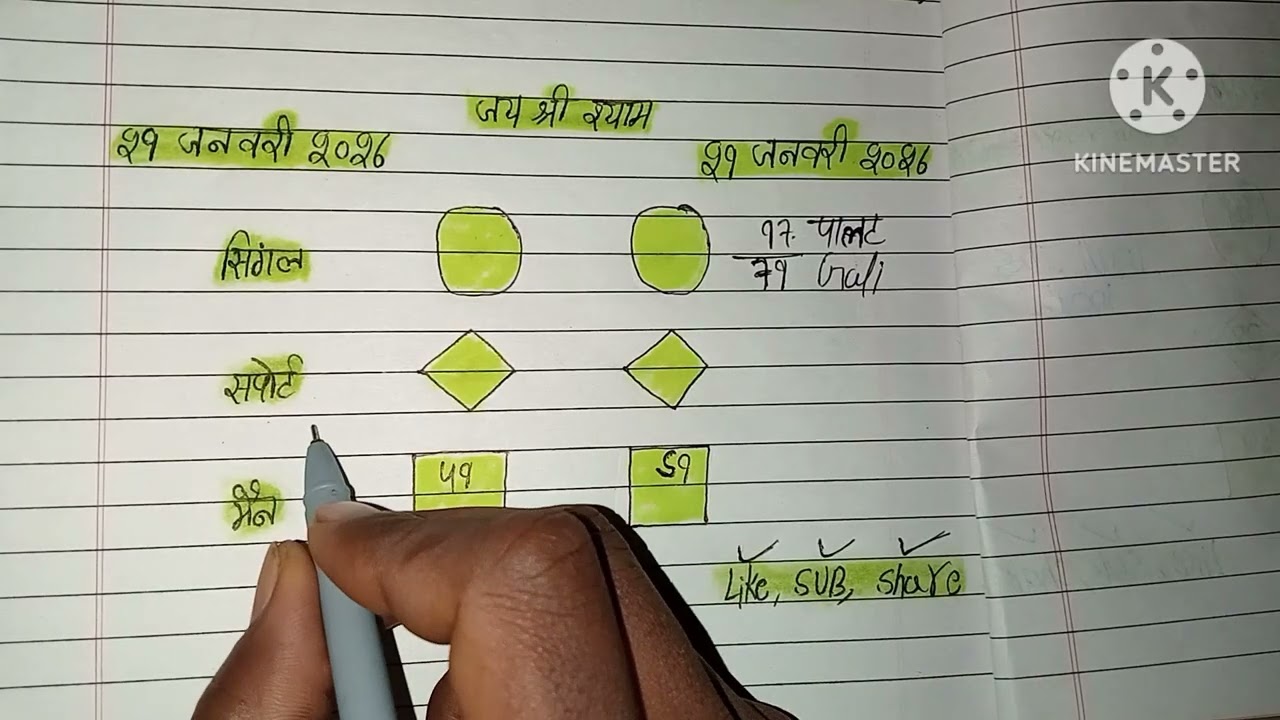 जय श्री श्याम
२१ जनवरी २०२६
२१ जनवरी २०२६
सिंगल
17. पालट
71 Gali
सपोर्ट
मैन
५१
Like, SUB, Share
KINEMASTER